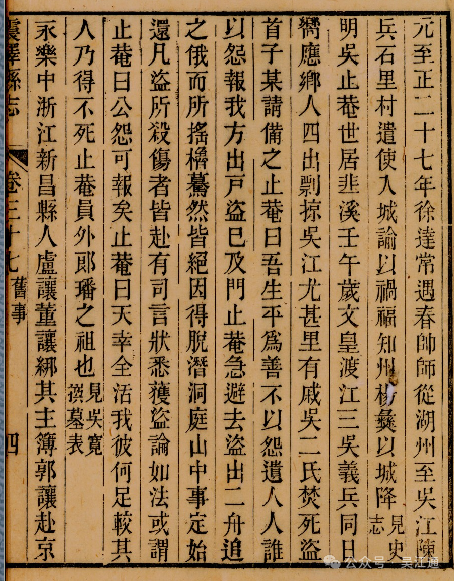 元至正二十七年徐達常遇春帥師從湖州至吳江陳
兵石里村遣使入城論以禍福知州楊彝以城降見史志
明吳止菴世居韭溪壬午歲文皇渡江三吳義兵同日
嚮應鄉人四出剽掠吳江尤甚里有戚吳二氏焚死盜
首子某請備之止菴曰吾生平爲善不以怨遺人人誰
以怨報我方出戶盜巳及門止菴急避去盜出二舟追
之俄而所搖櫓驀然皆絕因得脫潛洞庭山中事定始
還凡盜所殺傷者皆赴有司言狀悉獲盜論如法或謂
止菴曰公怨可報矣止菴曰天幸全活我彼何足較其
人乃得不死止菴員外郎璠之祖也見吳寬撰墓表
永樂中浙江新昌縣人盧讓董讓綁其主簿郭讓赴京
震澤縣志 卷三十七 舊事 四
公众号 · 吴江通